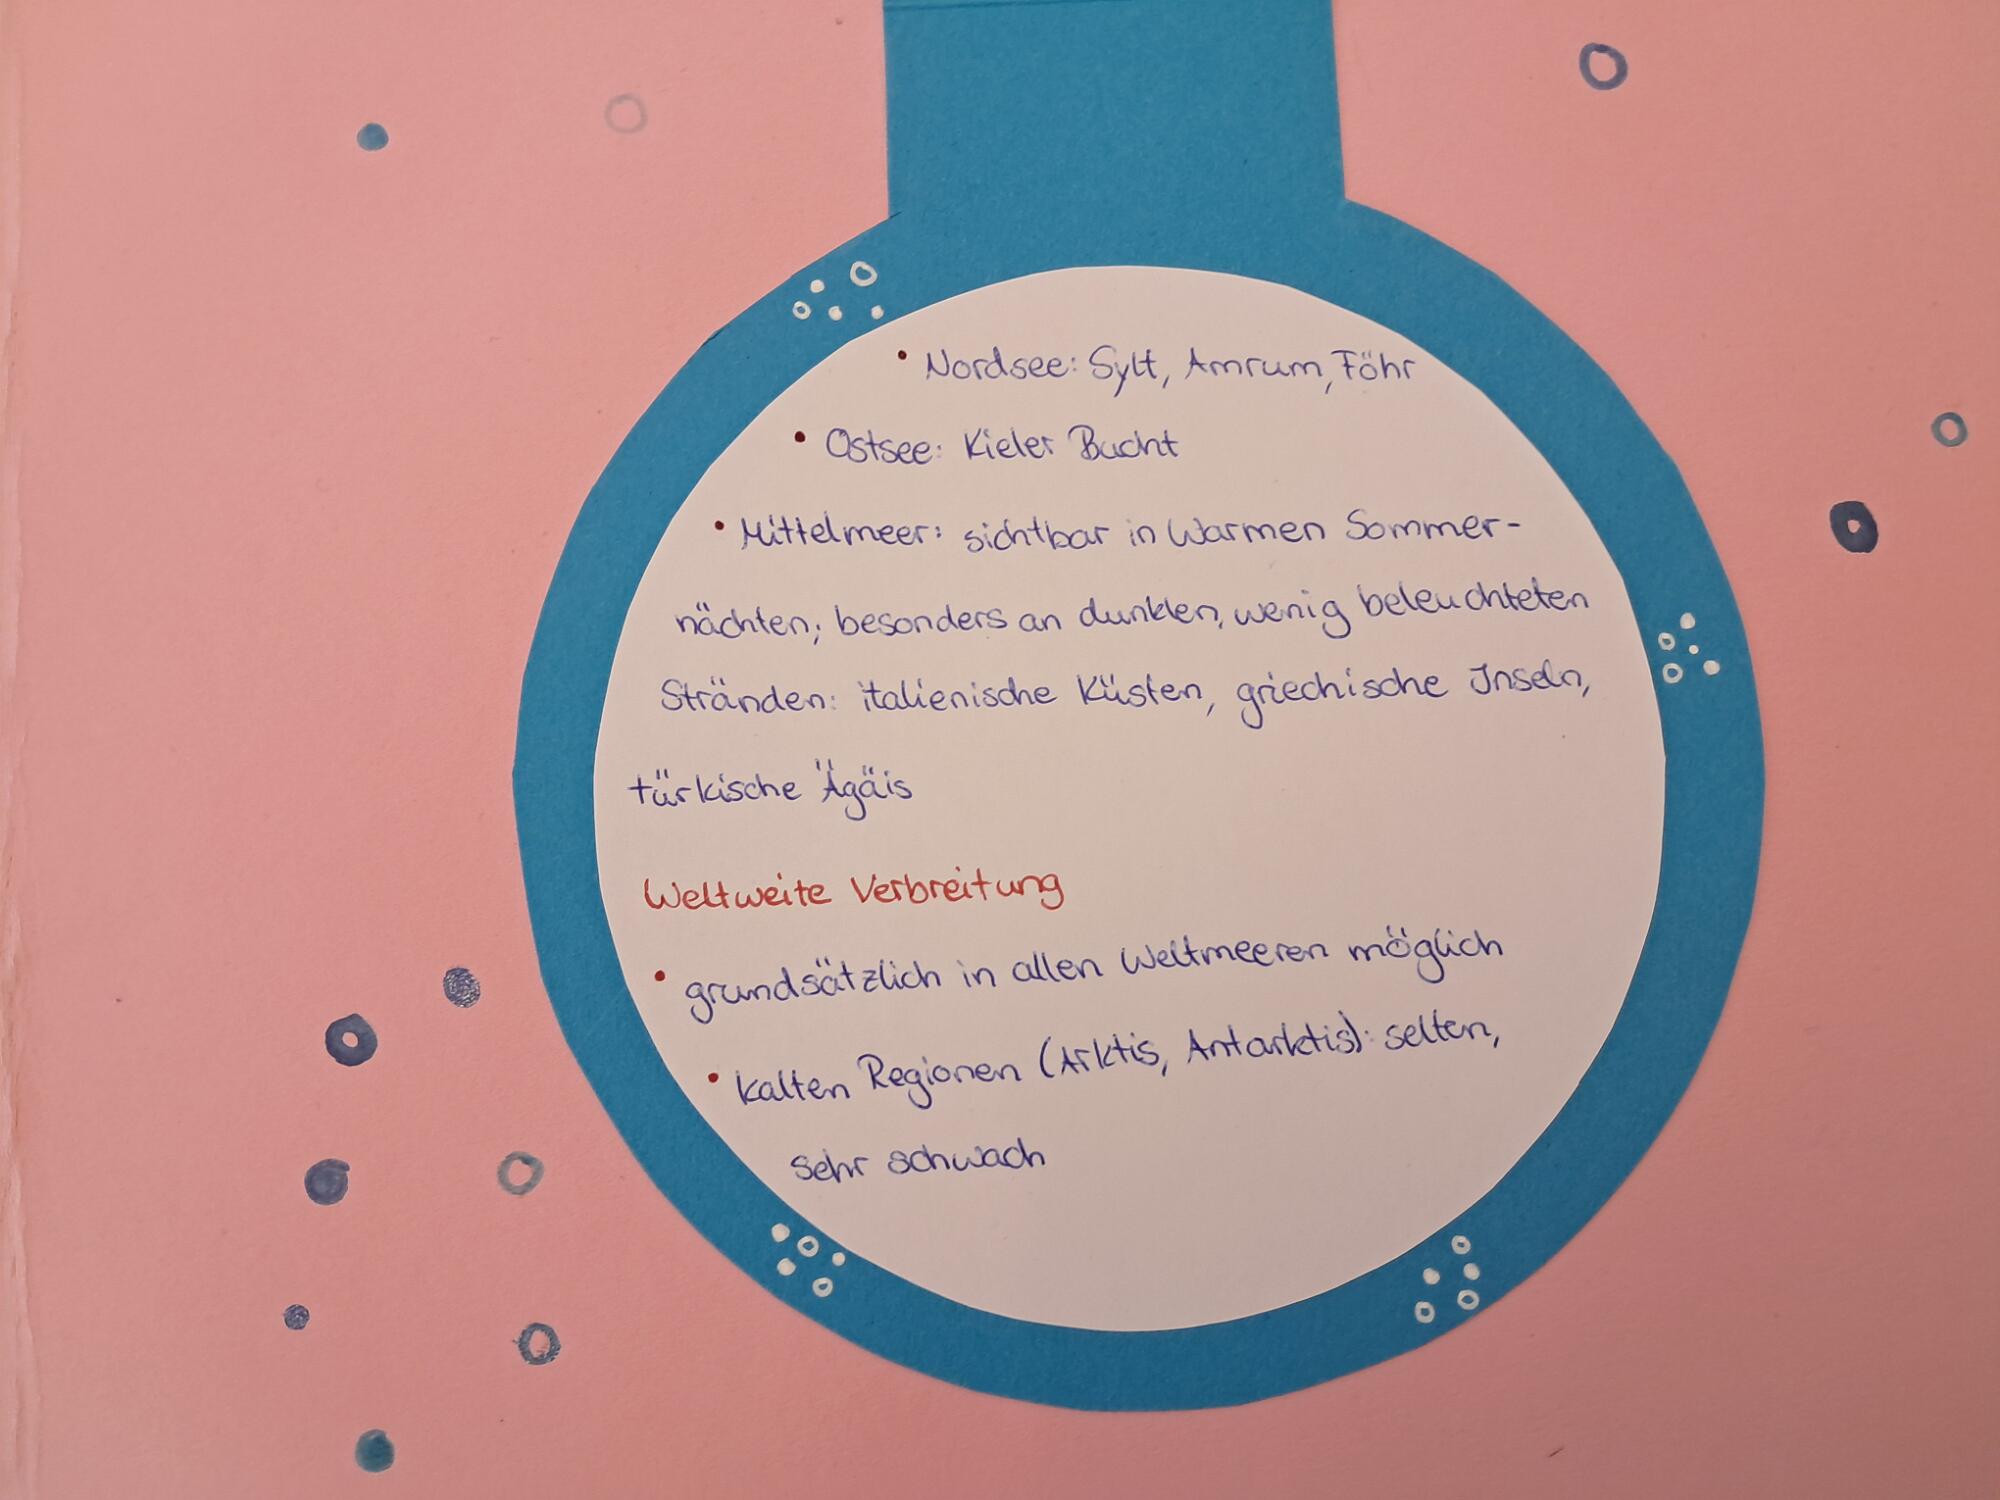 • Nordsee: Sylt, Amrum, Föhr
• Ostsee: Kieler Bucht
• Mittelmeer: sichtbar in Warmen Sommer-
nächten; besonders an dunklen, wenig beleuchteten
Stränden: italienische Küsten, griechische Inseln,
türkische Ägäis
Weltweite Verbreitung
• grundsätzlich in allen Weltmeeren möglich
• kalten Regionen (Arktis, Antarktis): selten,
sehr schwach